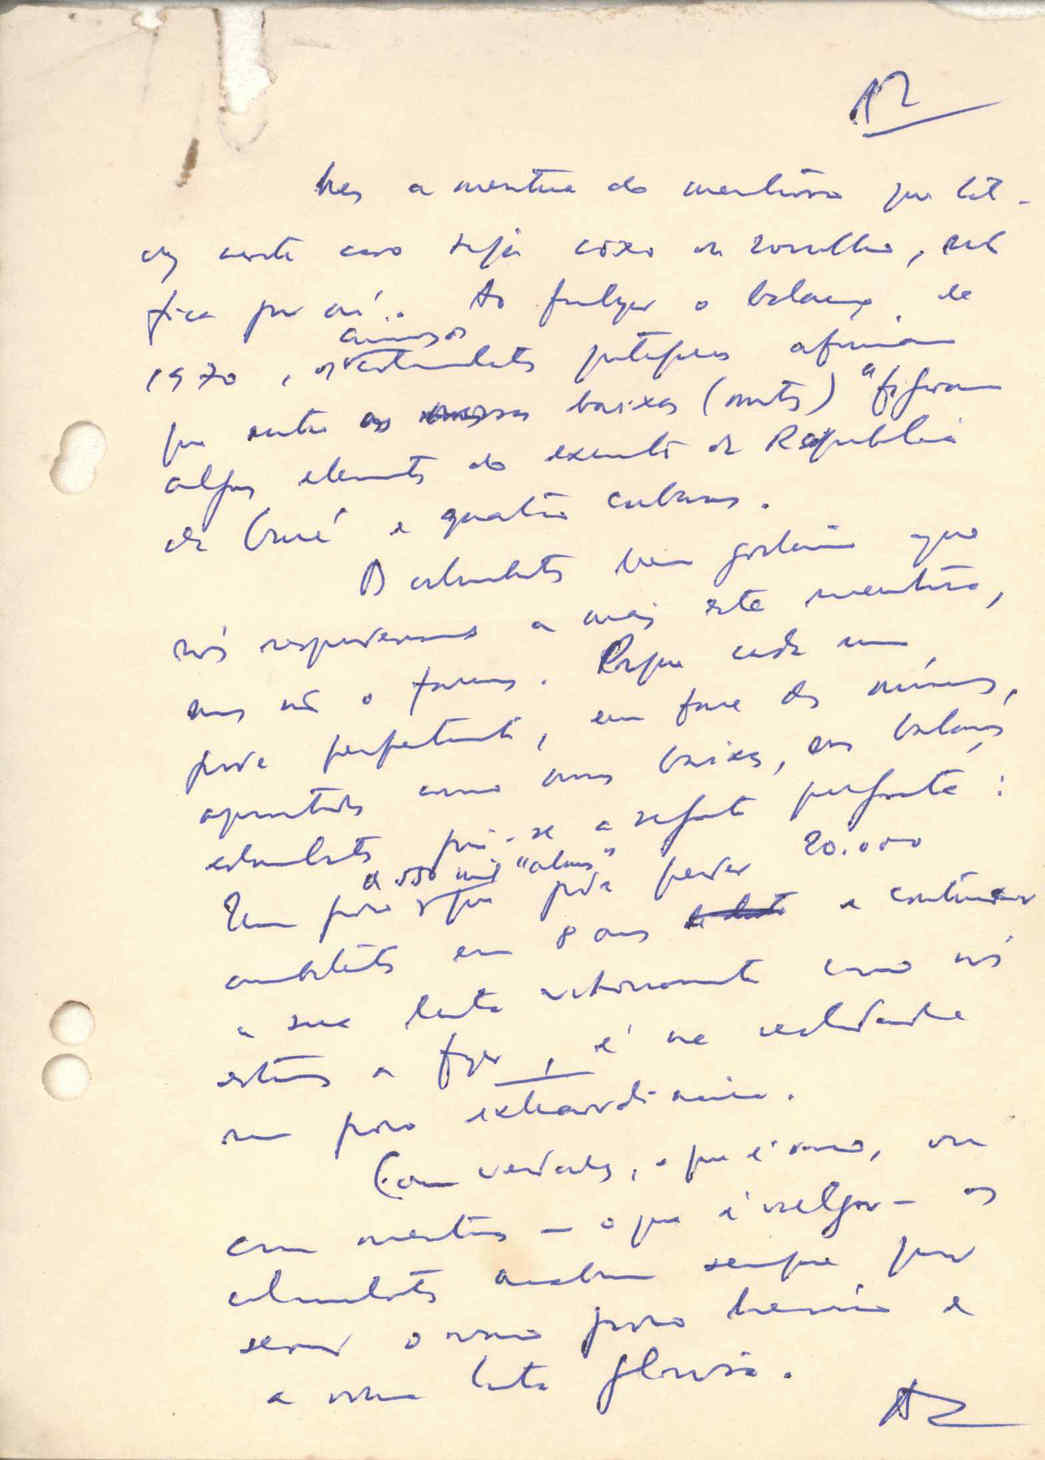 12
Mas a mentira do mentiroso que tal-
vez neste caso seja coxo ou zarolho, não
fica por aí. Ao fazer o balanço de
1970, os criminosos colonialistas portugueses afirmam
que entre as nossas baixas (mortos) "figuram
alguns elementos do exército da República
da Guiné e quatro cubanos.
Os colonialistas bem gostariam que
nós respondessemos a mais esta mentira,
mas não o faremos. Porque cada um
pode perfeitamente, em face dos números,
apontados como nossas baixas, nos balanços
colonialistas, pôr-se a seguinte pergunta:
Um povo de 550 mil "almas" que pode perder 20.000
combatentes em 8 anos e continuar
a sua luta vitoriosamente como nós
estamos a fazer, é na realidade
um povo extraordinário.
Com verdades, o que é raro, ou
com mentiras – o que é vulgar – os
colonialistas acabam sempre por
servir o nosso povo heróico e
a nossa luta gloriosa.